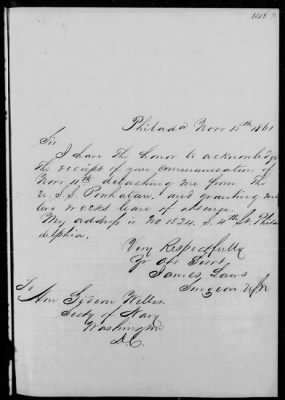 Philada Novr 15th 1861
Sir
I have the honor to acknowledge
the receipt of your communication of
Novr 11th detaching me from the
U.S.S. Powhatan, and granting me
two weeks leave of absence.
My address is No 1524. S. 4th St. Phila
delphia.
Very Respectfully
Yr Obt Servt
James Laws
Surgeon USN
To
Hon Gideon Welles
Secty of Navy
Washington
D.C.